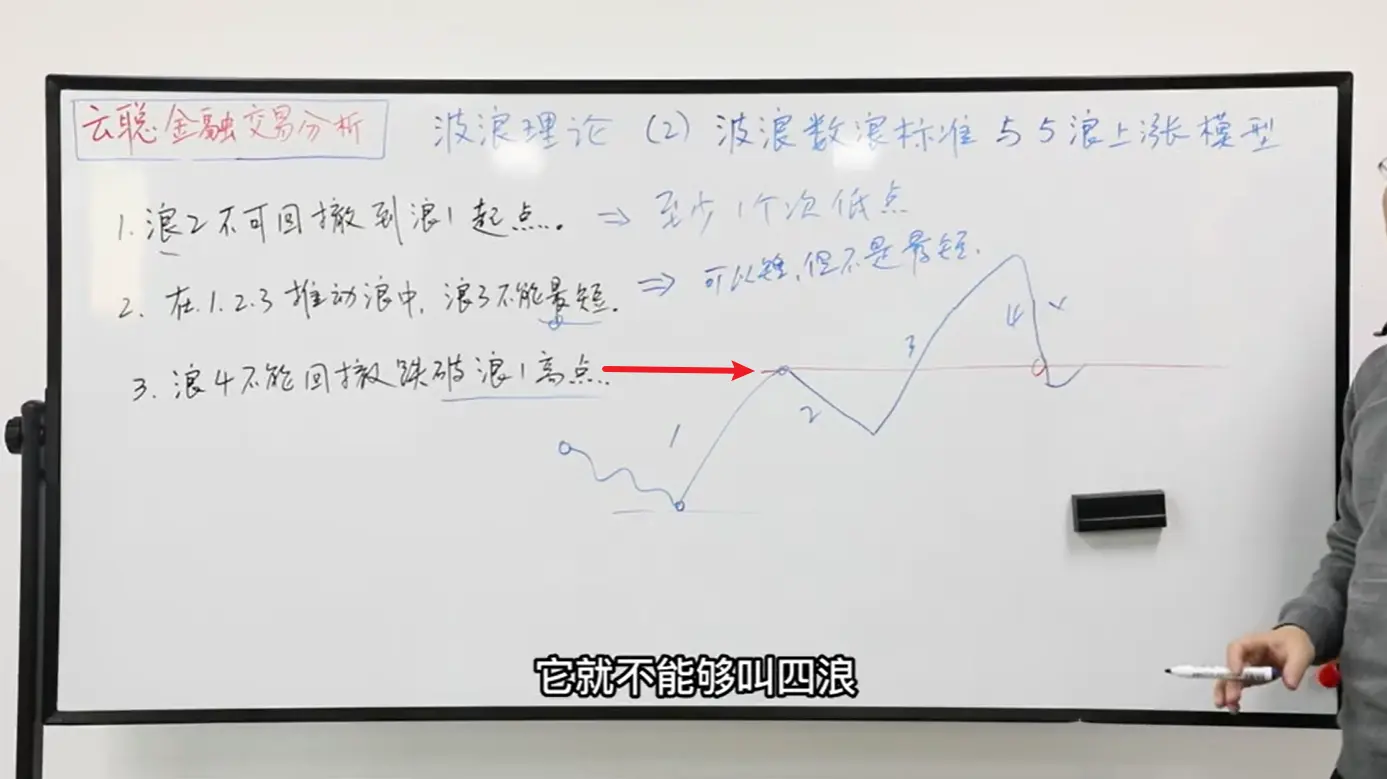 云聪金融交易分析
波浪理论（2）波浪数浪标准与5浪上涨模型
1. 浪2不可回撤到浪1起点。⇒ 至少1个次低点
2. 在1.2.3推动浪中，浪3不能最短。⇒ 可以短，但不是最短.
3. 浪4不能回撤跌破浪1高点.
1
2
3
4
它就不能够叫四浪